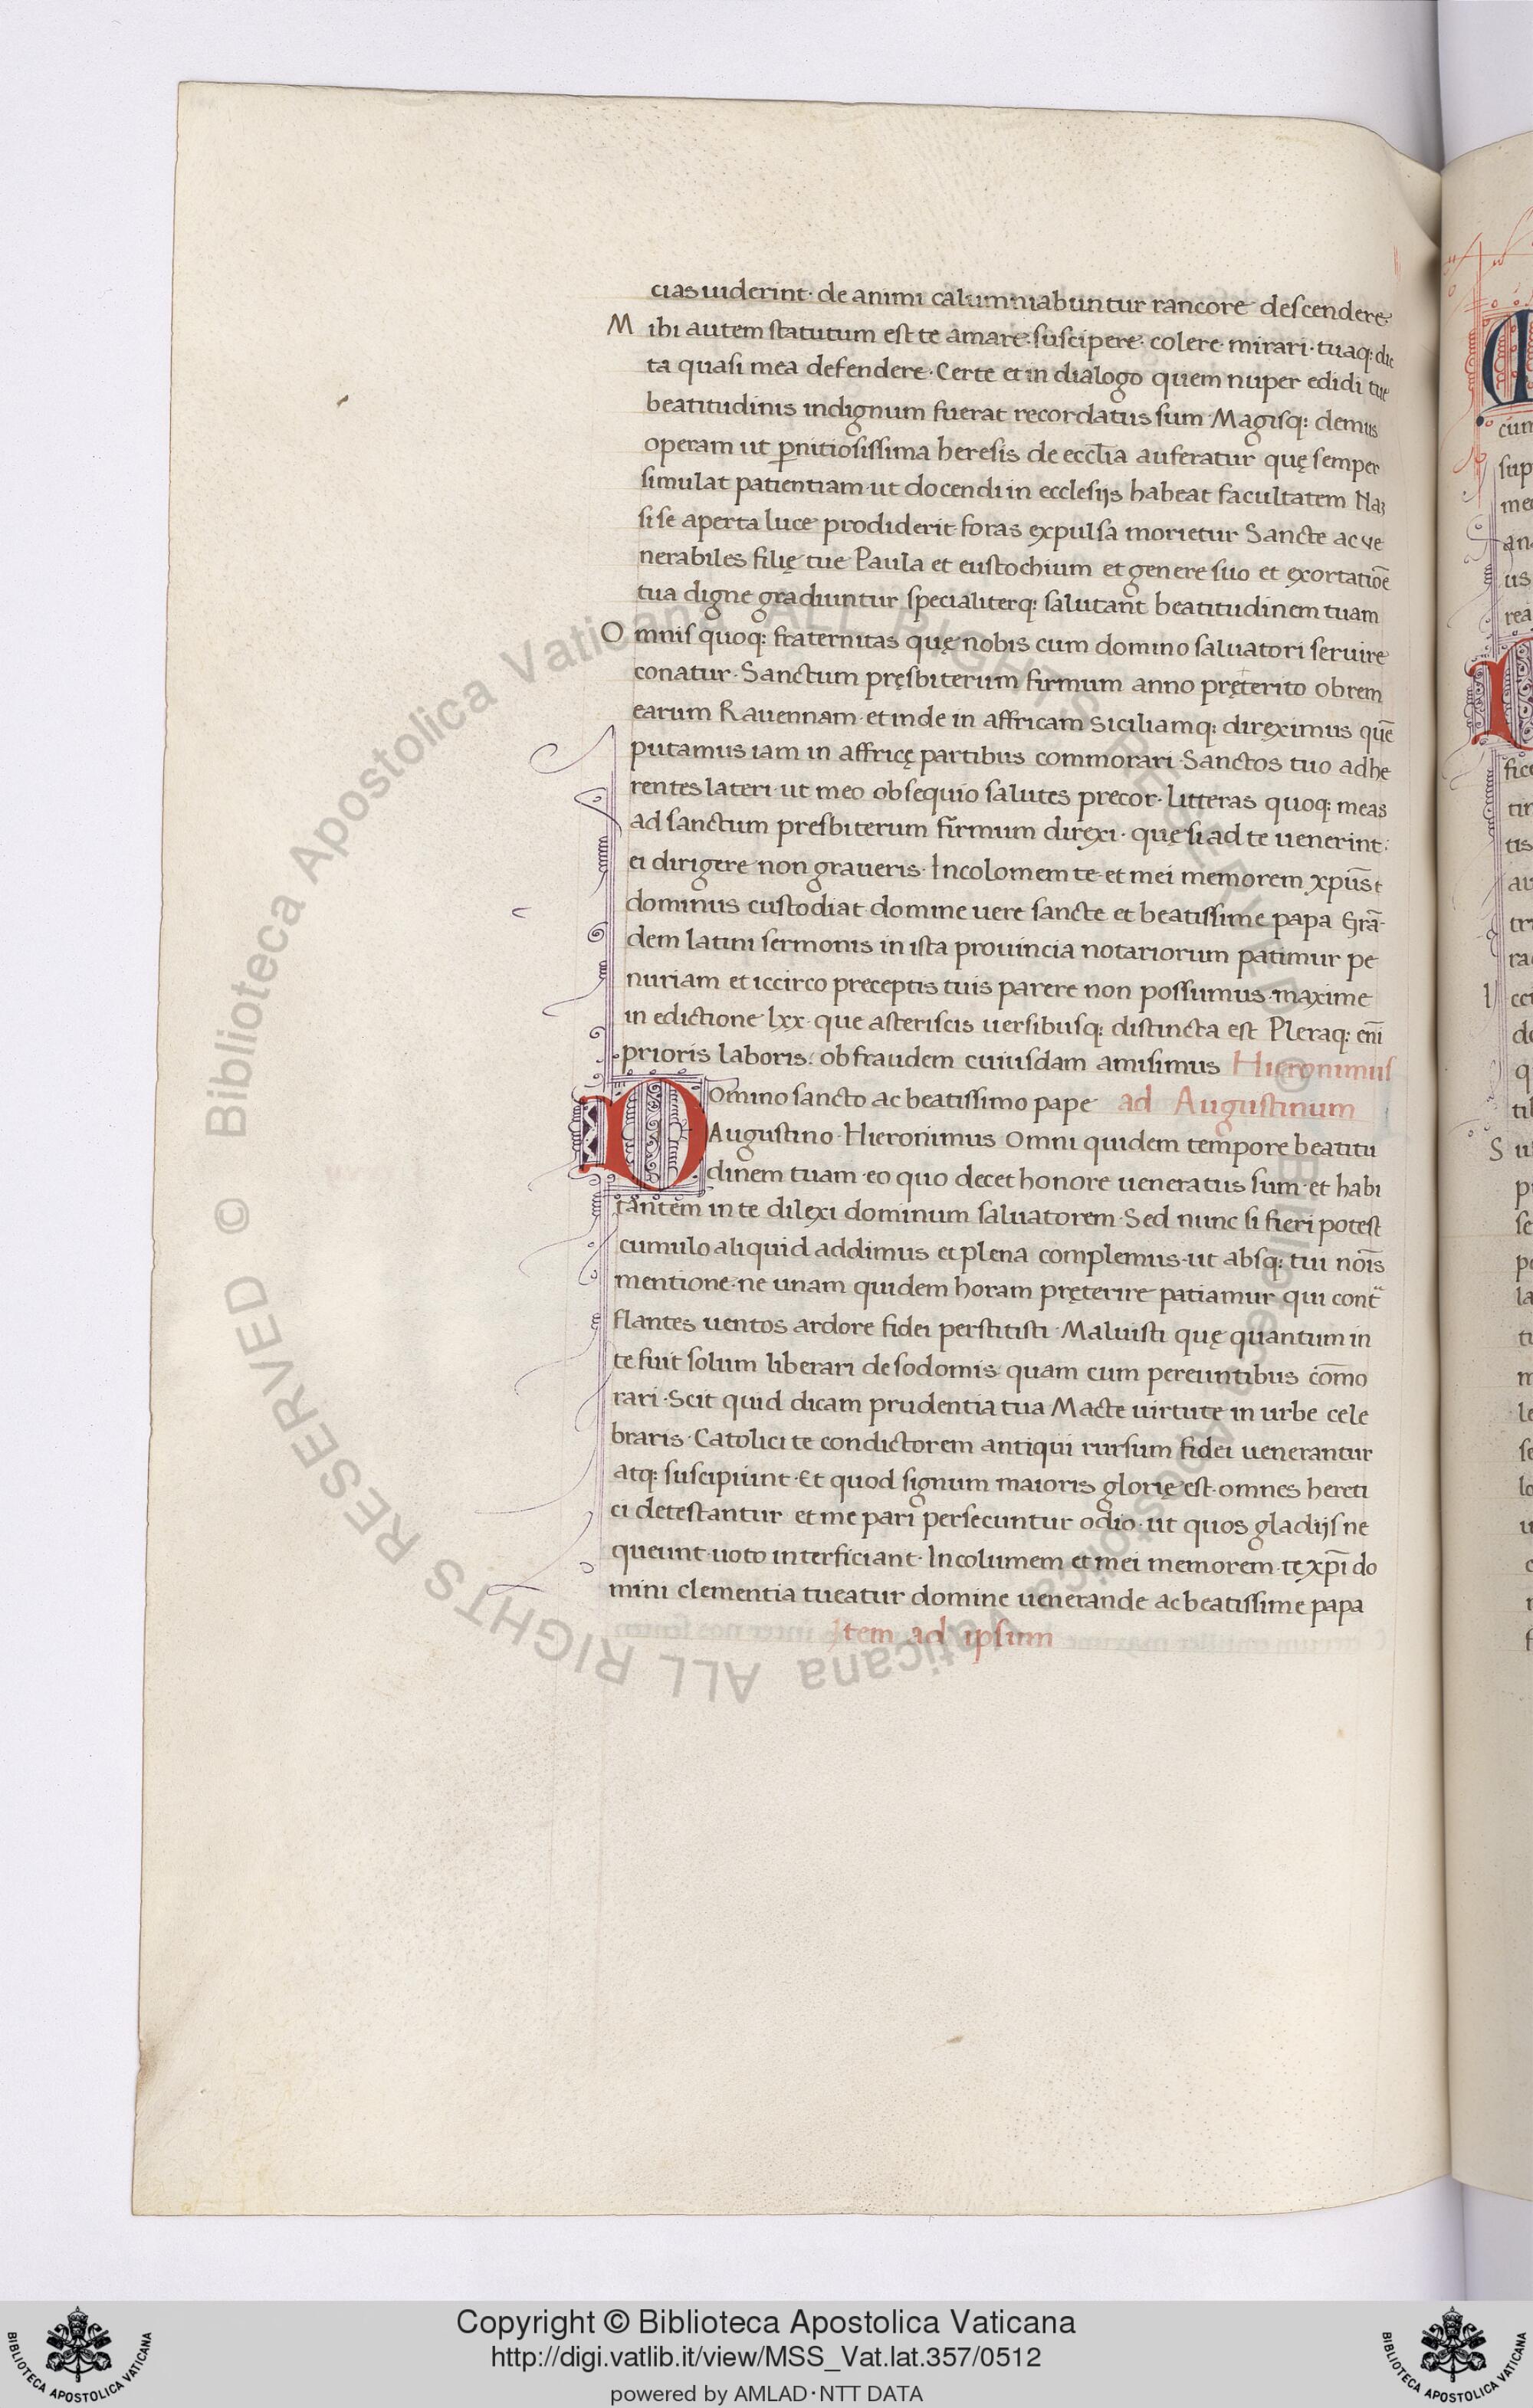 cias uiderint · de animi calumniabuntur rancore descendere
Mihi autem statutum est te amare · suscipere · colere · mirari · tuaq: dic
ta quasi mea defendere · Certe et in dialogo quem nuper edidi tue
beatitudinis indignum fuerat recordatus sum Magisq: demus
operam ut ꝑnitiosissima heresis de eccl̄ia auferatur quę semper
simulat patientiam · ut docendi in ecclesijs habeat facultatem Naꝫ
si se aperta luce prodiderit foras expulsa morietur Sancte ac ve
nerabiles filię tue Paula et eustochium et genere suo et exortatiōe
tua digne gradiuntur specialiterq: salutant beatitudinem tuam
Omnis quoq: fraternitas quę nobis cum domino saluatori seruire
conatur · Sanctum pręsbiterum firmum anno pręterito ob rem
earum Rauennam · et inde in affricam siciliamq: direximus quē
putamus iam in affricę partibus commorari · Sanctos tuo adhe
rentes lateri · ut meo obsequio salutes precor · Litteras quoq: meas
ad sanctum presbiterum firmum direxi · quę si ad te uenerint ·
ei dirigere non graueris · Incolomem te et mei memorem xp̄us t
dominus custodiat domine uere sancte et beatissime papa Grā-
dem latini sermonis in ista prouincia notariorum patimur pe
nuriam et iccirco preceptis tuis parere non possumus · maxime
in edictione lxx · que asteriscis uersibusq: distincta est Pleraq: enī
prioris laboris · ob fraudem cuiusdam amisimus Hieronimus
Domino sancto ac beatissimo pape ad Augustinum
Augustino · Hieronimus Omni quidem tempore beatitu
dinem tuam · eo quo decet honore ueneratus sum · et habi
tantem in te dilexi dominum saluatorem · Sed nunc si fieri potest
cumulo aliquid addimus et plena complemus · ut absq: tui nōis
mentione · ne unam quidem horam pręterire patiamur qui cont̄
flantes uentos ardore fidei perstitisti · Maluisti quę quantum in
te fuit solum liberari de sodomis quam cum pereuntibus cōmo
rari · Scit quid dicam prudentia tua Macte uirtute in urbe cele
braris · Catolici te condictorem antiqui rursum fidei uenerantur
atq: suscipiunt · Et quod signum maioris glorię est · omnes hereti
ci detestantur et me pari persecuntur odio · ut quos gladijs ne
queunt · uoto interficiant · Incolumem et mei memorem · te xp̄i do
mini clementia tueatur domine uenerande ac beatissime papa
Item ad ipsum
Biblioteca Apostolica Vaticana ALL RIGHTS RESERVED ©
Copyright © Biblioteca Apostolica Vaticana
http://digi.vatlib.it/view/MSS_Vat.lat.357/0512
powered by AMLAD·NTT DATA
BIBLIOTECA APOSTOLICA VATICANA
BIBLIOTECA APOSTOLICA VATICANA